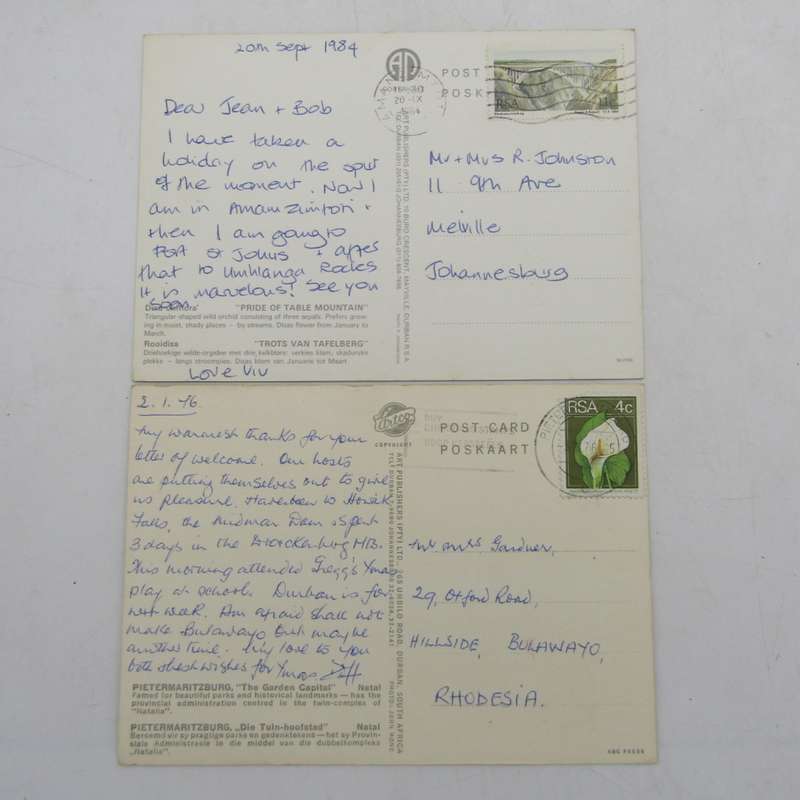 20th Sept 1984
Dear Jean + Bob
I have taken a
holiday on the spur
of the moment. Now I
am in Amamzimtoti +
then I am going to
Port St Johns + after
that to Umhlanga Rocks
It is marvelous! See you
soon.
"PRIDE OF TABLE MOUNTAIN"
Triangular shaped wild orchid consisting of three sepals. Prefers grow-
ing in moist, shady places — by streams. Disas flower from January to
March.
Rooidisa "TROTS VAN TAFELBERG"
Driehoekige wilde-orgidee met drie kelkblare: verkies klam, skaduryke
plekke — langs stroompies. Disas blom van Januarie tot Maart
Love Viv
POST
POSK
RSA 11c
Mr + Mrs R. Johnston
11 9th Ave
Melville
Johannesburg
2.1.76
My warmest thanks for your
letter of welcome. Our hosts
are putting themselves out to give
us pleasure. Have been to Howick
Falls, the Midmar Dam & spent
3 days in the Drackensberg Mts.
This morning attended Gregg's Xmas
play at school. Durban is for
next week. Am afraid shall not
make Bulawayo but maybe
another time. My love to you
both & best wishes for Xmas
PIETERMARITZBURG, "The Garden Capital" Natal
Famed for beautiful parks and historical landmarks — has the
provincial administration centred in the twin-complex of
"Natalia".
PIETERMARITZBURG, „Die Tuin-hoofstad" Natal
Beroemd vir sy pragtige parke en gedenktekens — het sy Provin-
siale Administrasie in die middel van die dubbelkompleks
„Natalia".
Artco
COPYRIGHT
ART PUBLISHERS (PTY) LTD., 365 UMBILO ROAD, DURBAN, SOUTH AFRICA
POST CARD
POSKAART
RSA 4c
Mr & Mrs Gardner,
29, Oxford Road,
HILLSIDE, BULAWAYO,
RHODESIA.